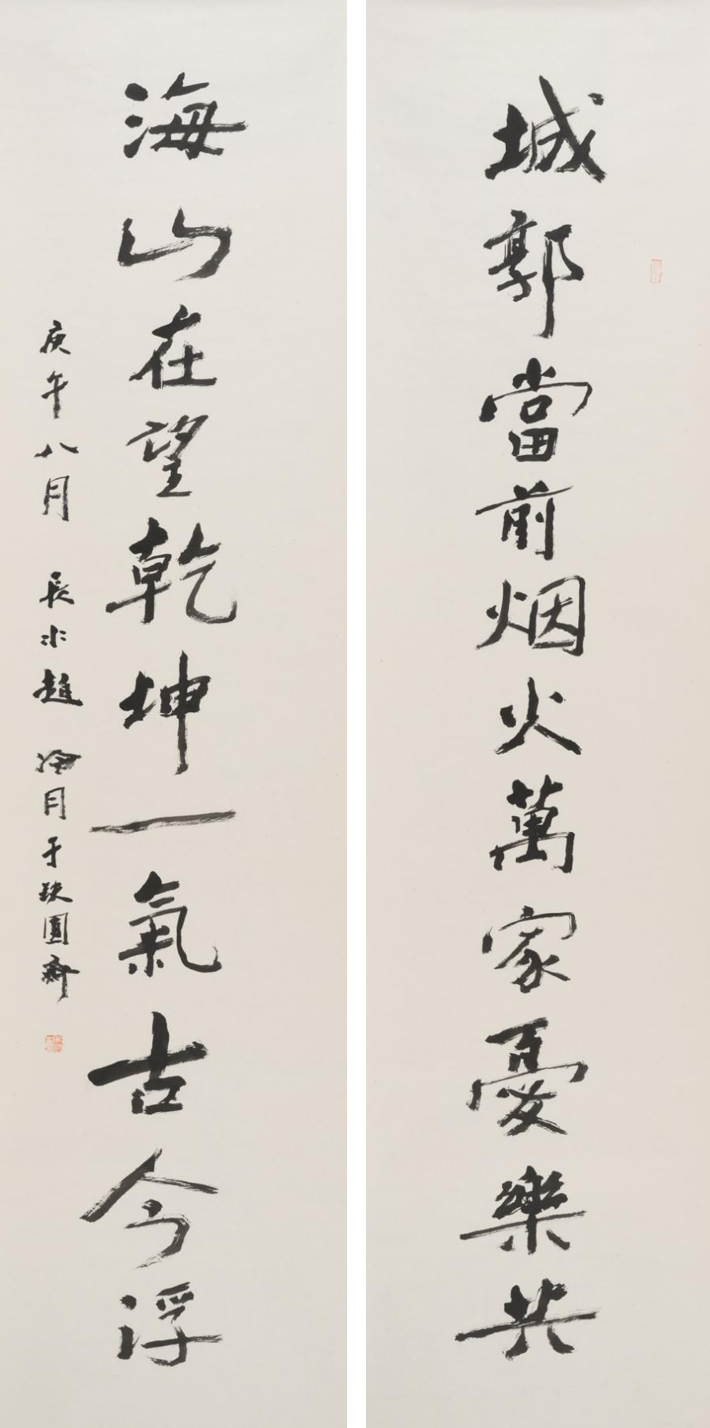 城郭當前烟火萬家憂樂共
海山在望乾坤一氣古今浮
庚午八月 長水趙 冷月于玖圓齋